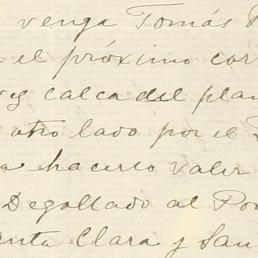 venga Tomás
el próximo cor
calca del plan
otro lado por el
hacerlo valer
Degollado al Po
anta Clara y San